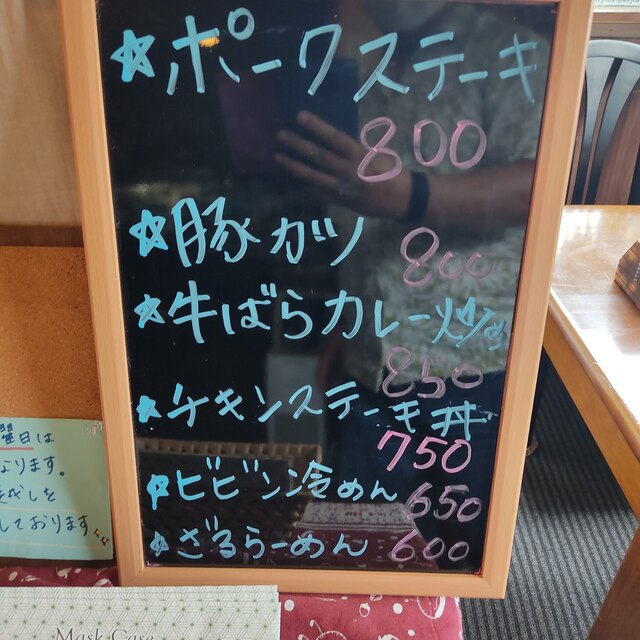 ☆ポークステーキ
800
☆豚カツ 800
☆牛ばらカレー炒め
850
☆チキンステーキ丼
750
☆ビビン冷めん 650
☆ざるらーめん 600
曜日は
なります。
しております
Mask Case